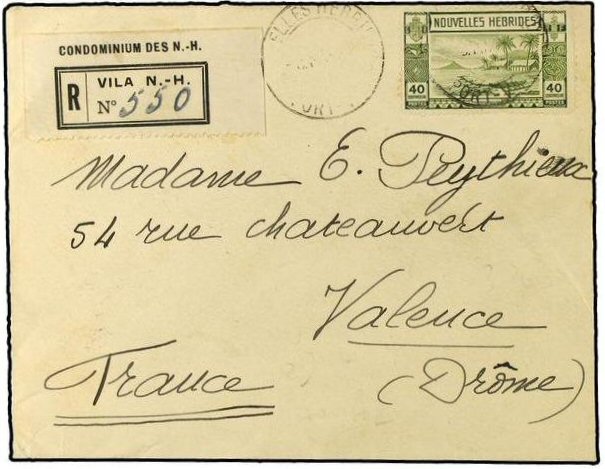 CONDOMINIUM DES N.-H.
R
VILA N.-H.
N° 550
NOUVELLES HEBRIDES
40
40
Madame E. Peythieux
54 rue chateauvert
Valence
France
(Drôme)